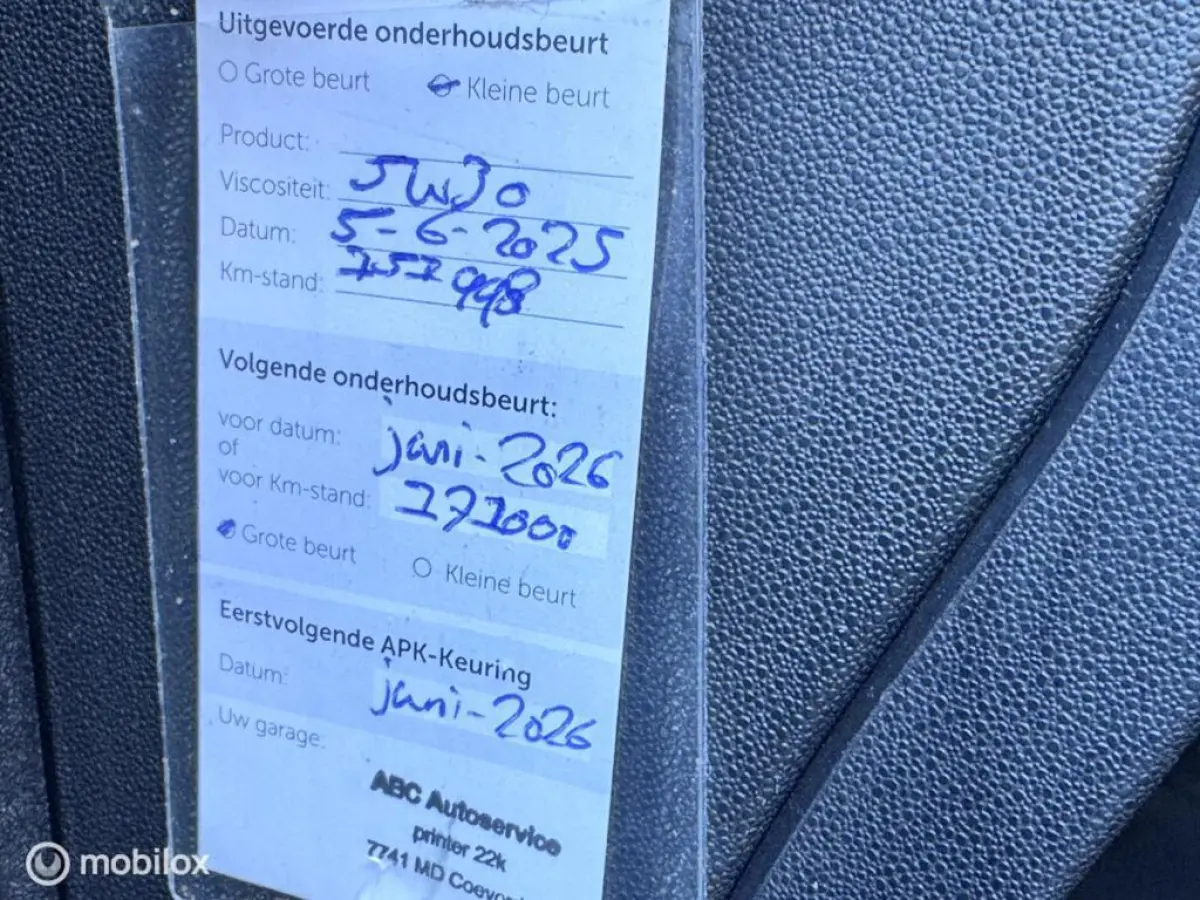 Uitgevoerde onderhoudsbeurt
Grote beurt Kleine beurt
Product:
Viscositeit: 5W30
Datum: 5-6-2025
Km-stand: 157998
Volgende onderhoudsbeurt:
voor datum: juni-2026
of
voor Km-stand: 171000
Grote beurt Kleine beurt
Eerstvolgende APK-Keuring
Datum: juni-2026
Uw garage:
ABC Autoservice
printer 22k
7741 MD Coevor
mobilox